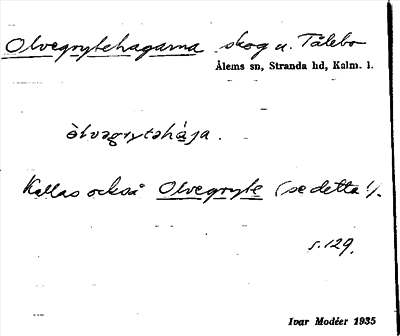 Olvegrytehagarna skog u. Tålebo
Ålems sn, Stranda hd, Kalm. l.
òlvəgrytəhàga.
Kallas också Olvegryte (se detta!).
s. 129.
Ivar Modéer 1935